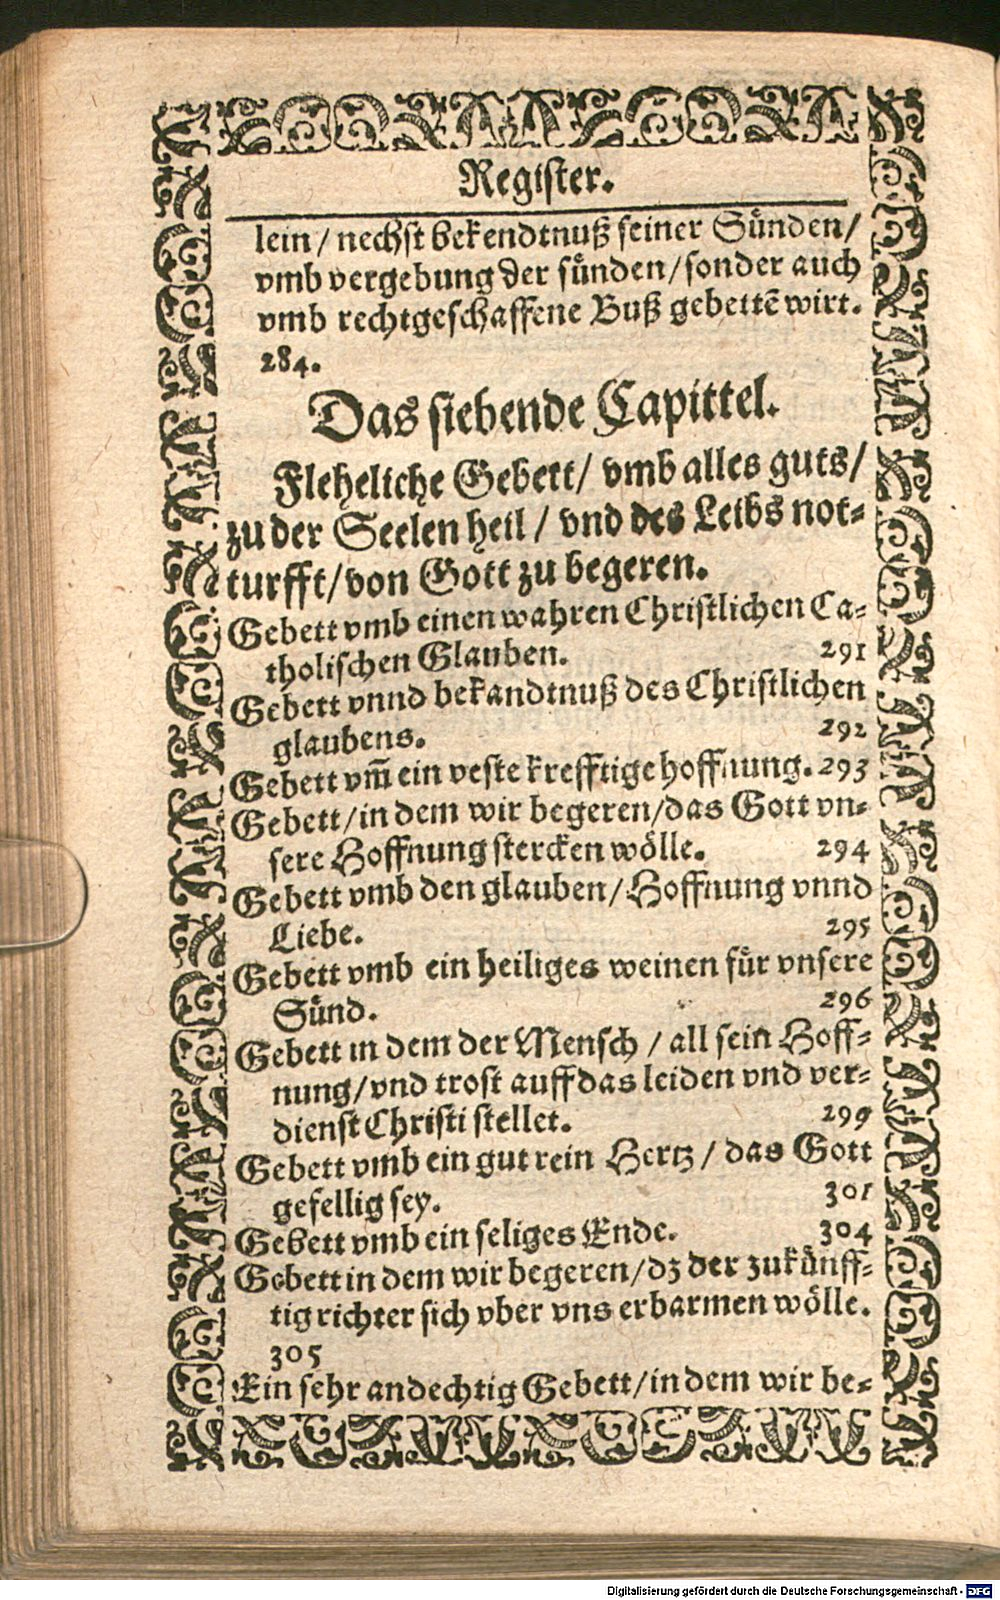 Register.
lein / nechst bekendtnuß seiner Sünden /
vmb vergebung der sünden / sonder auch
vmb rechtgeschaffene Buß gebettē wirt.
284.
Das siebende Capittel.
Fleheliche Gebett / vmb alles guts /
zu der Seelen heil / vnd des Leibs not-
turfft / von Gott zu begeren.
Gebett vmb einen wahren Christlichen Ca-
tholischen Glauben. 291
Gebett vnnd bekandtnuß des Christlichen
glaubens. 292
Gebett vm̄ ein veste krefftige hoffnung. 293
Gebett / in dem wir begeren / das Gott vn-
sere Hoffnung stercken wölle. 294
Gebett vmb den glauben / Hoffnung vnnd
Liebe. 295
Gebett vmb ein heiliges weinen für vnsere
Sünd. 296
Gebett in dem der Mensch / all sein Hoff-
nung / vnd trost auff das leiden vnd ver-
dienst Christi stellet. 299
Gebett vmb ein gut rein Hertz / das Gott
gefellig sey. 301
Gebett vmb ein seliges Ende. 304
Gebett in dem wir begeren / dz der zukünff-
tig richter sich vber vns erbarmen wölle.
305
Ein sehr andechtig Gebett / in dem wir be-
Digitalisierung gefördert durch die Deutsche Forschungsgemeinschaft - DFG